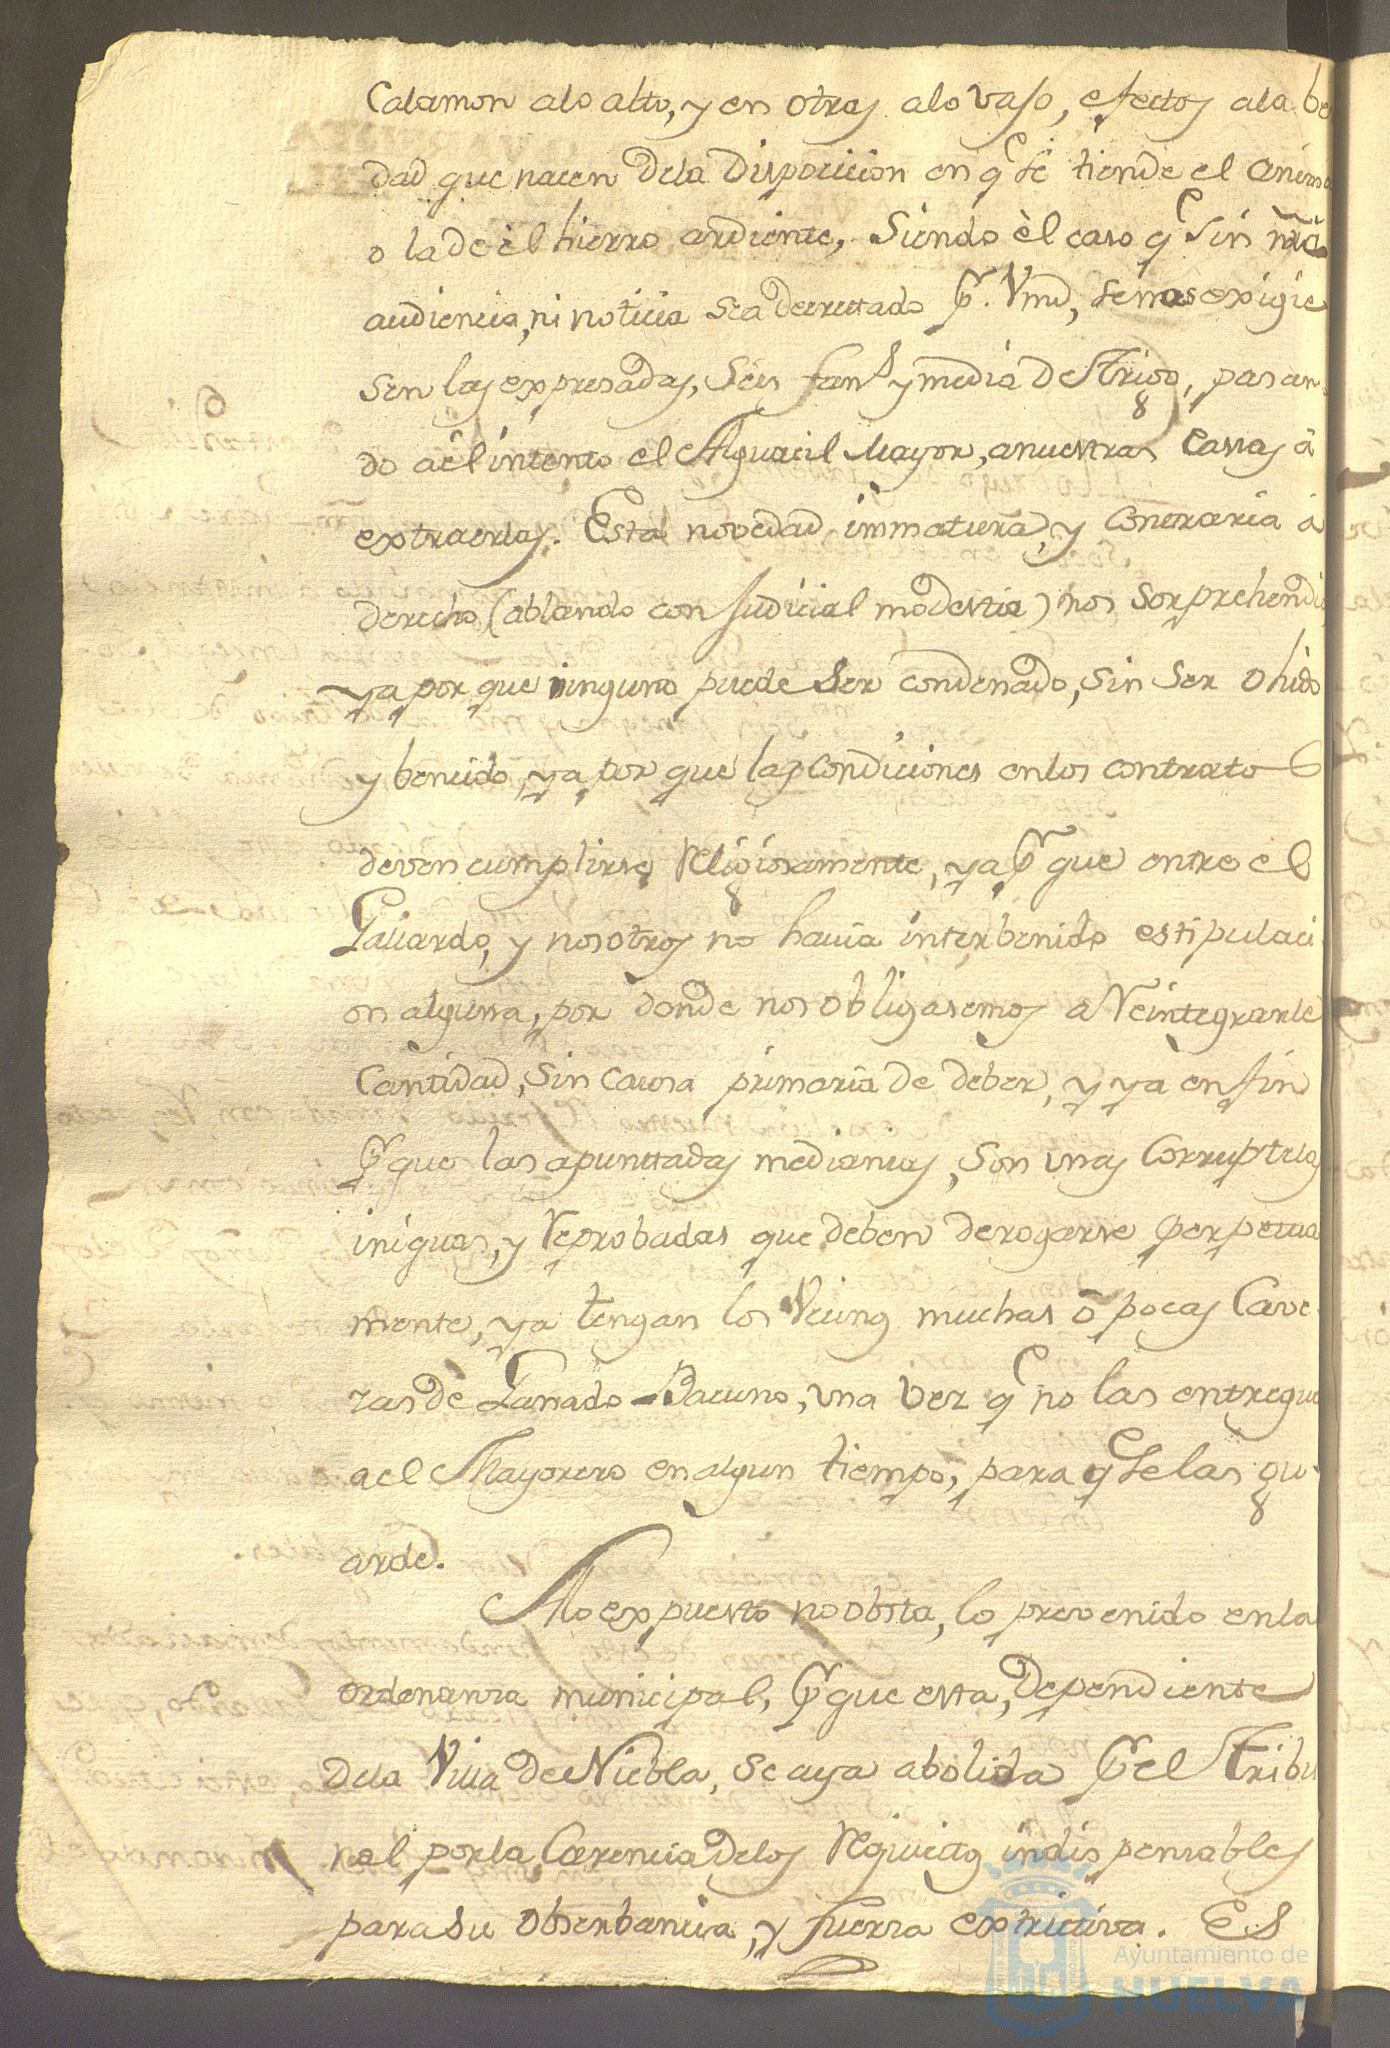 Calamon alo alto, y en otras alo vaso, efectos ala be
dad que nacen dela Disposicion en q̃ se tiende el anima
o la de èl hierro ardiente, Siendo èl caso q̃ sin nrã
audiencia, ni noticia sea decrettado pr. Vmd, se nos exigie
sen las expresadas, Seis fans y media de Trigo, pasan
do aèl intento el Alguacil Mayor, a nuestras Casas à
extraerlas. Esta novedad immatura, y Contraria à
derecho (ablando con Judicial modestia) nos Sorprehendiò
ya por que ninguno puede Ser condenado, sin ser ohido
y bencido, ya por que las condiciones enlos contratos
deven cumplirse Religiosamente, ya pr que entre el
Gallardo, y nosotros no havia interbenido estipulaci
on alguna, por donde nos obligasemos a Reintegrarle
Cantidad, sin causa primaria de deber, y ya en fin
pr que las apunttadas medianias, son unas Corruptelas
iniquas, y Reprobadas que deben derogarse perpetua
mente, ya tengan los Vecinos muchas ō pocas Cave
zas de Ganado Bacuno, una vez q̃ no las entregue
ael Mayorero en algun tiempo, para q̃ se las gu
arde.
Alo expuesto no obsta, lo prevenido enla
ordenanza municipal, pr que esta, Dependiente
dela Villa de Niebla, se aya abolida pr el Tribu
nal por la Carencia delos Requicitos indispensables
para su obserbancia, y fuerza extrictiva. Es
Ayuntamiento de
HUELVA